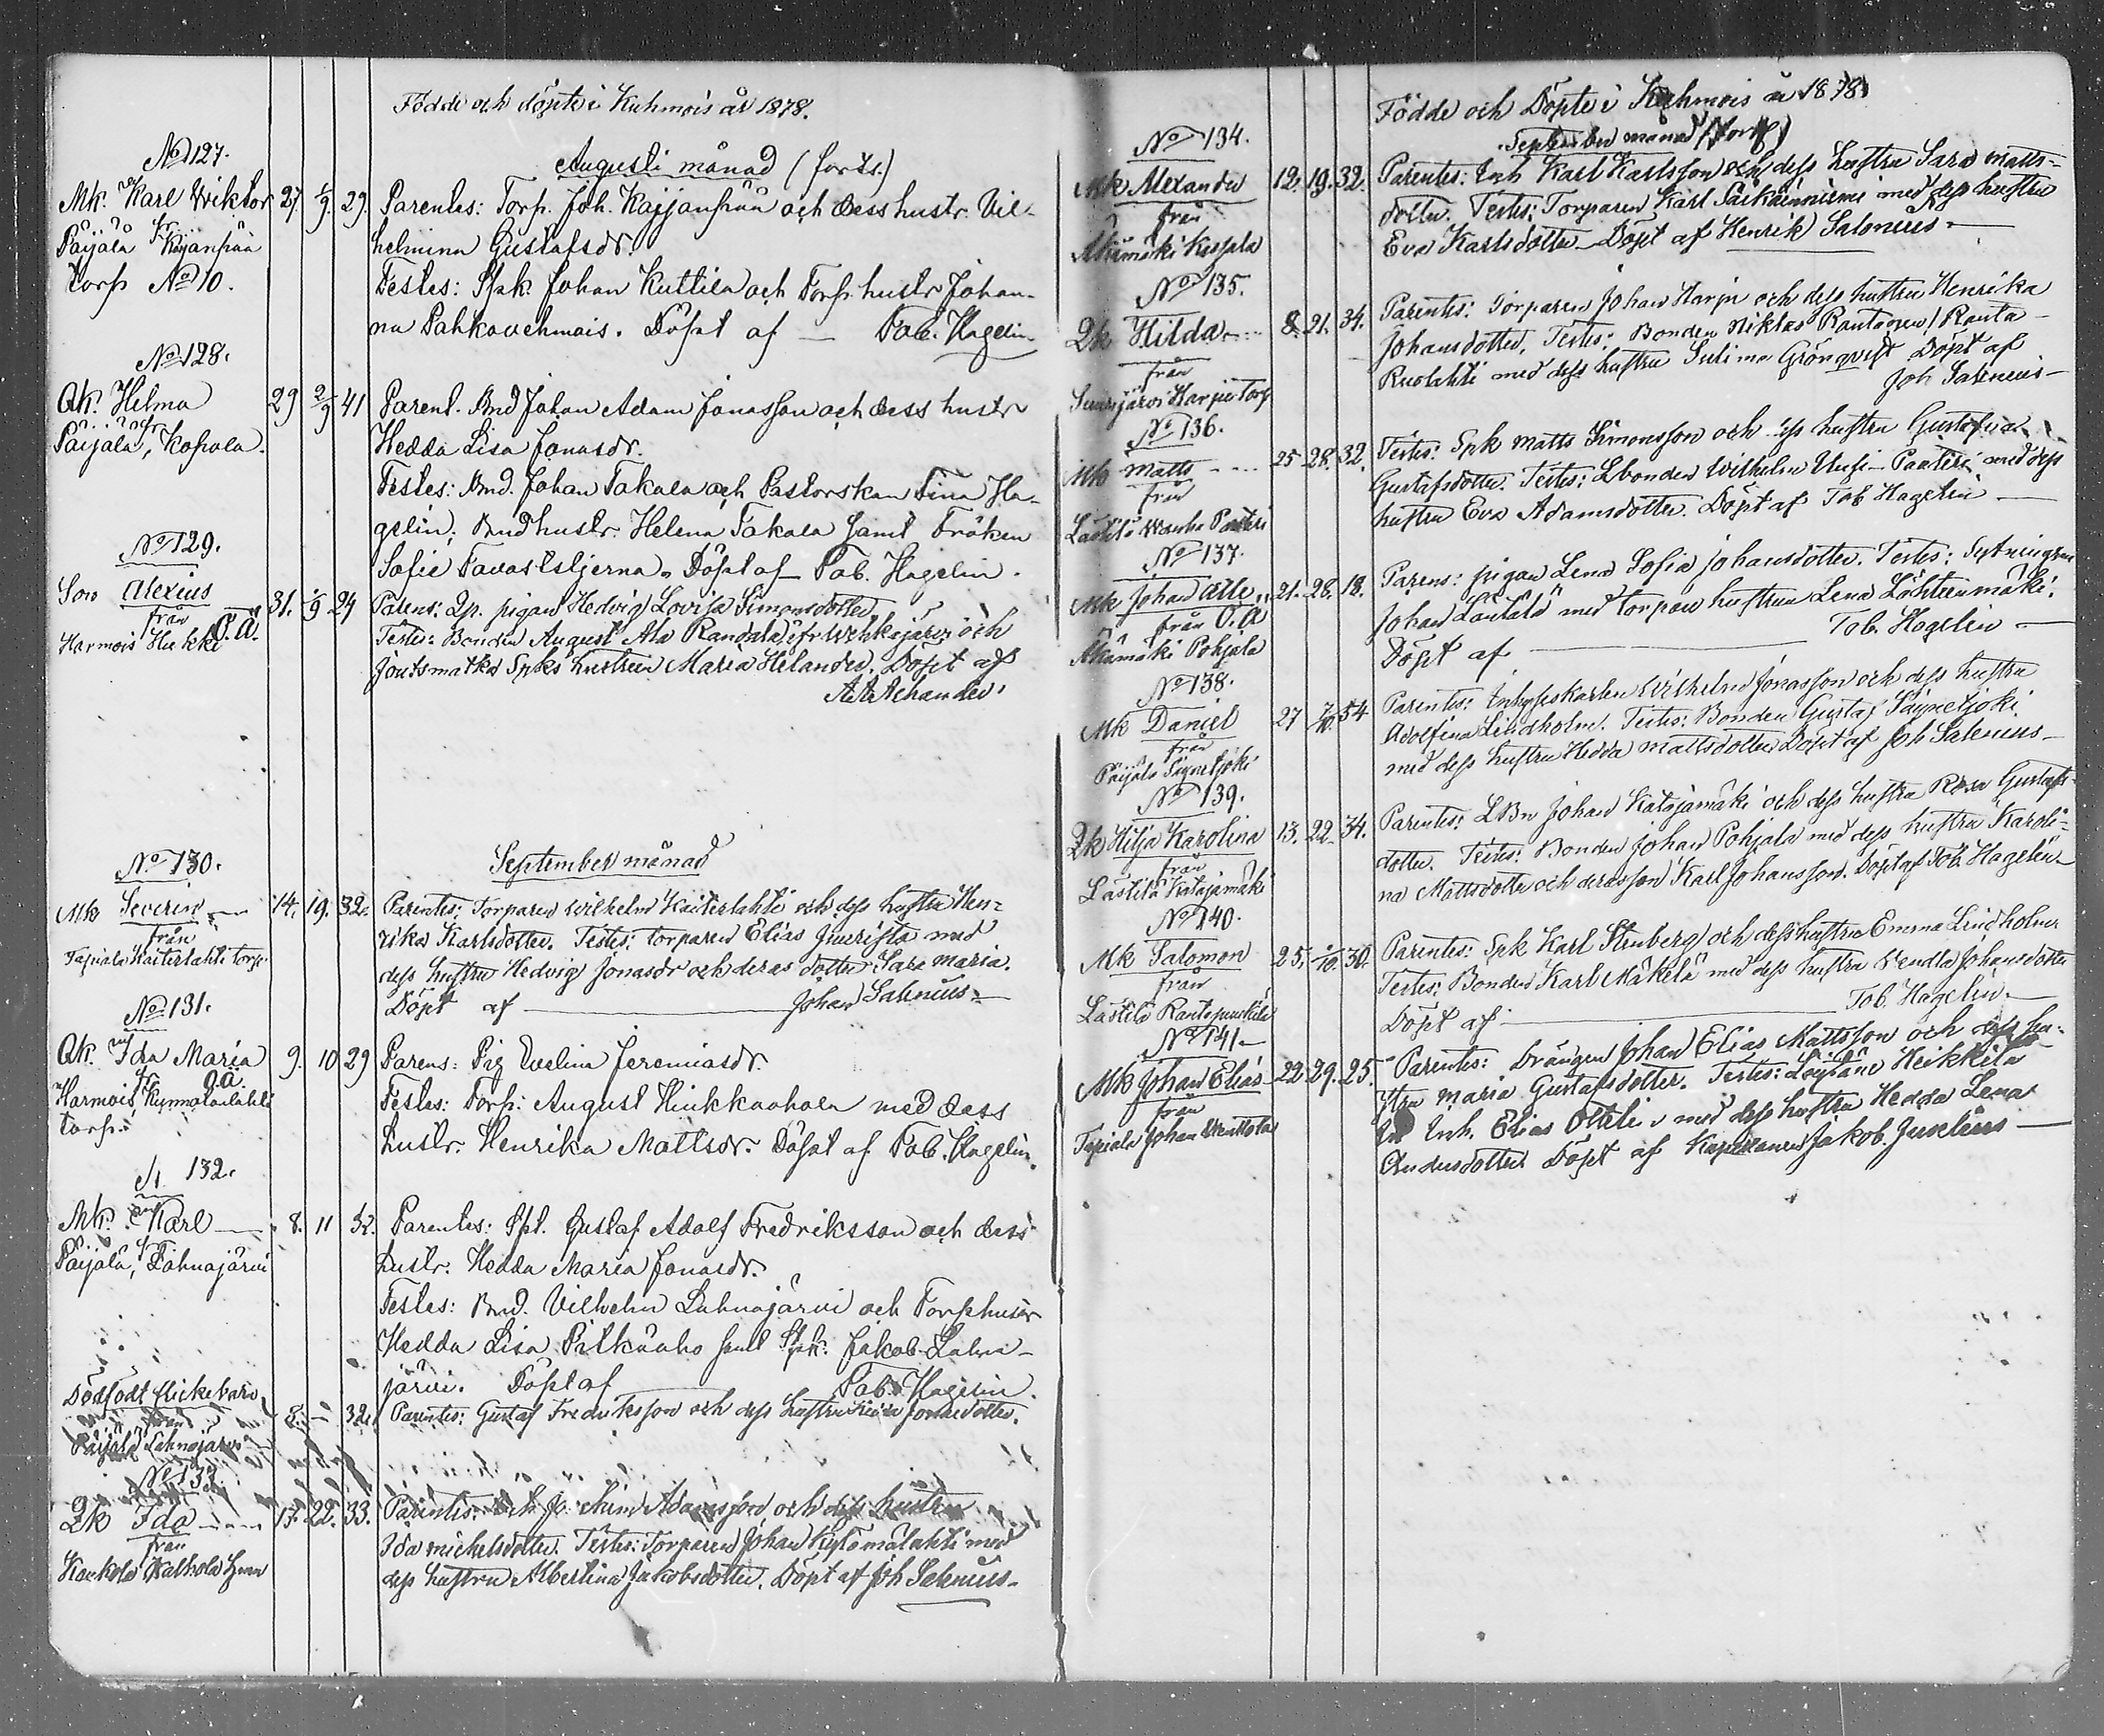 Födde och döpte i Kuhmois år 1878.
Augusti månad (forts.)
No 127.
Mk. Karl Wiktor 27. 1/9. 29.
fr.
Päijälä Kaijanpää
torp No 10.
Parentes: Torp. Joh. Kaijanpää och dess hustr. Vil-
helmina Gustafsdr.
Testes: Spk. Johan Kuttila och Torp.hustr Johan-
na Pahkavehmais. Döpt af — Tob. Hagelin.
No 128.
Qk. Helma 29 2/9 41
Päijälä, Kopola.
Parent. Bnd Johan Adam Jonasson och dess hustr
Hedda Lisa Jonasdr.
Testes: Bnd. Johan Takala och Pastorskan Fina Ha-
gelin; Bndhustr. Helena Takala samt Fröken
Sofie Tavaststjerna. Döpt af Tob. Hagelin.
No 129.
Son Alexius 31. 1/9 24
från O.Ä.
Harmois Hukki
Parens: Qp. pigan Hedvig Lovisa Simonsdotter,
Testes: Bonden August Ala Randala ifr Wehkajärvi och
Joutsmatka Spks hustrun Maria Helander. Döpt af
September månad
No 130.
Mk Severin 14. 19. 32.
från
Tapiala Kaiterlahti torp.
Parentes: Torparen Wilhelm Kaiterlahti och dess hustru Hen-
rika Karlsdotter. Testes: torparen Elias med
dess hustru Hedvig Jonasdr och deras dotter Sara Maria.
Döpt af — Johan Salenius.
No 131.
Qk. Ida Maria 9. 10 29
fr. O.ä.
Harmois,
torp.
Parens: Pig Evelina Jeremiasdr.
Testes: Torp: August Hinkkaahola med dess
hustr. Henrika Mattsdr. Döpt af Tob. Hagelin.
N. 132.
Mk. Karl 8. 11 32.
fr
Päijälä, Lahnajärvi
Parentes: Spt. Gustaf Adolf Fredriksson och dess
hustr. Hedda Maria Jonasdr.
Testes: Bnd. Vilhelm Lahnajärvi och Torp.hustr
Hedda Lisa Pitkäaho samt Spk. Jakob Lahna-
järvi. Döpt af Tob. Hagelin.
Dödfödt flickebarn 8. — 32.
från
Päijälä Lahnajärvi
Parentes: Gustaf Fredriksson och dess hustru Hedda Jonasdotter.
No 133.
Qk Ida 17. 22. 33.
från
Parentes: Adamsson och dess hustru
Ida Michelsdotter. Testes: Torparen Johan Kylämälahti med
dess hustru Albertina Jakobsdotter. Döpt af Joh Salenius.
Födde och Döpte i Kuhmois år 1878.
September månad (forts)
No 134.
Mk Alexander 12. 19. 32.
från
Parentes: Inh Karl Karlsson och dess hustru Sara Matts-
dotter. Testes: Torparen Karl med dess hustru
Eva Karlsdotter. Döpt af Henrik Salonius.
No 135.
Qk Hilda 8. 21. 34.
från
Sunijärvi Harju torp
Parentes: Torparen Johan Harju och dess hustru Henrika
Johansdotter. Testes: Bonden Niklas Rantanen (Ranta-
Ruolahti med dess hustru Grönqvist Döpt af
Joh Salenius.
No 136.
Mk Matts 25. 28. 32.
från
Lästilä Wanha Pautiri
Testes: Spk Matts Simonsson och dess hustru Gustafva
Gustafsdotter. Testes: Lbonden Wilhelm Uusi-Pautiri med dess
hustru Eva Adamsdotter. Döpt af Tob Hagelin
No 137.
Mk Johan 21. 28. 18.
från O.Ä
Äkämäki Pohjala
Parens: pigan Lena Sofia Johansdotter. Testes:
Johan med torpare hustrun Lena
Döpt af — Tob. Hagelin
No 138.
Mk Daniel 27 7/10 34
från
Päijälä
Parentes: Inhyseskarlen Wilhelm Jonasson och dess hustru
Adolfina Lindholm. Testes: Bonden Gustaf
med dess hustru Hedda Mattsdotter Döpt af Joh Salenius
No 139.
Qk Hilja Karolina 13. 22. 34.
från
Lästilä Katajamäki
Parentes: LBn Johan Katajamäki och dess hustru Rosa Gustafs-
dotter. Testes: Bonden Johan Pohjala med dess hustru Karoli-
na Mattsdotter och deras son Karl Johansson. Döpt af Tob Hagelin
No 140.
Mk Salomon 25. 30.
från
Lästilä
Parentes: Spk Karl Stenberg och dess hustru Emma Lindholm
Testes: Bonden Karl Mäkelä med dess hustru Vendla Johansdotter
Döpt af — Tob. Hagelin.
No 141.
Mk Johan Elias 22. 29. 25.
från
Tapiala Johan
Parentes: Drängen Johan Elias Mattsson och dess hu-
stru Maria Gustafsdotter. Testes: Heikkilä
Inh. Elias med dess hustru Hedda Lena
Andersdotter Döpt af Kapellanen Jakob